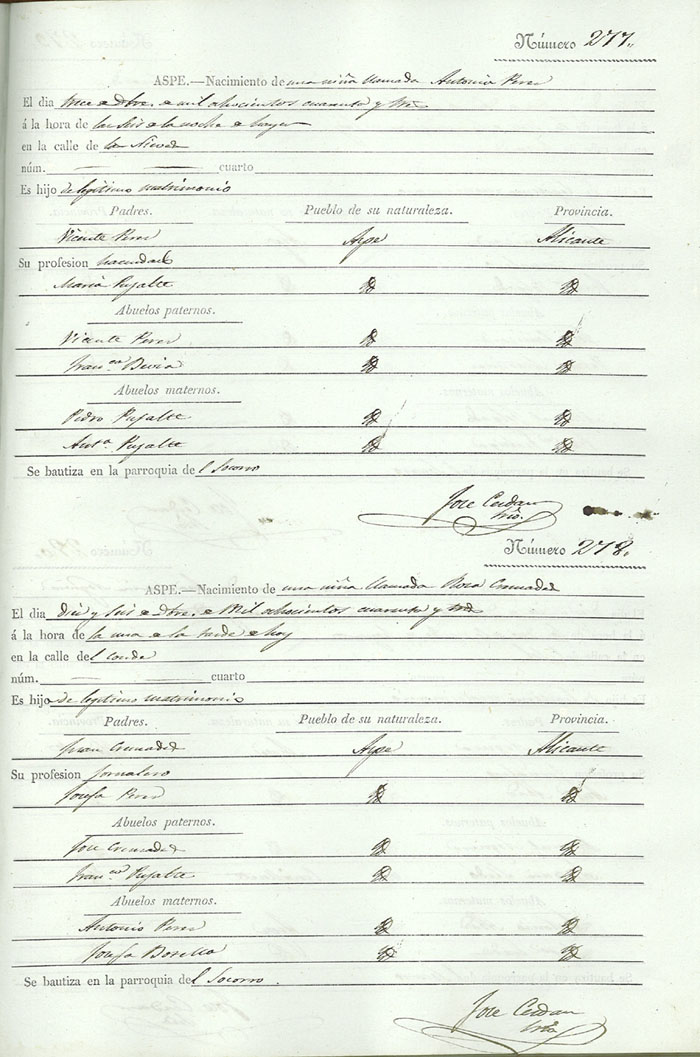 Número 277.
ASPE.—Nacimiento de una niña llamada Antonia Perez
El dia trece de Dbre. de mil ochocientos cuarenta y tres
á la hora de las seis de la noche de hayer
en la calle de la Nieves
núm. cuarto
Es hijo de legitimo matrimonio
Padres. Pueblo de su naturaleza. Provincia.
Vicente Perez Aspe Alicante
Su profesion hacendado
Maria Pujalte
Abuelos paternos.
Vicente Perez
Fran.ca Bevia
Abuelos maternos.
Pedro Pujalte
Ant.a Pujalte
Se bautiza en la parroquia del Socorro
Jose Cerdan
Srio.
Número 278.
ASPE.—Nacimiento de una niña llamada Rosa Cremades
El dia diez y seis de Dbre. de Mil ochocientos cuarenta y tres
á la hora de la una de la tarde de hoy
en la calle del conde
núm. cuarto
Es hijo de legitimo matrimonio
Padres. Pueblo de su naturaleza. Provincia.
Juan Cremades Aspe Alicante
Su profesion Jornalero
Josefa Perez
Abuelos paternos.
Jose Cremades
Fran.ca Pujalte
Abuelos maternos.
Antonio Perez
Josefa Botella
Se bautiza en la parroquia del Socorro.
Jose Cerdan
Srio